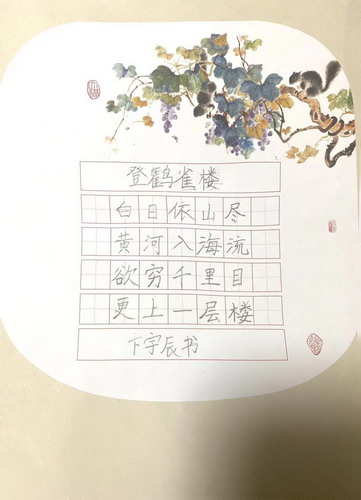 登鹳雀楼
白日依山尽
黄河入海流
欲穷千里目
更上一层楼
卞宇辰书